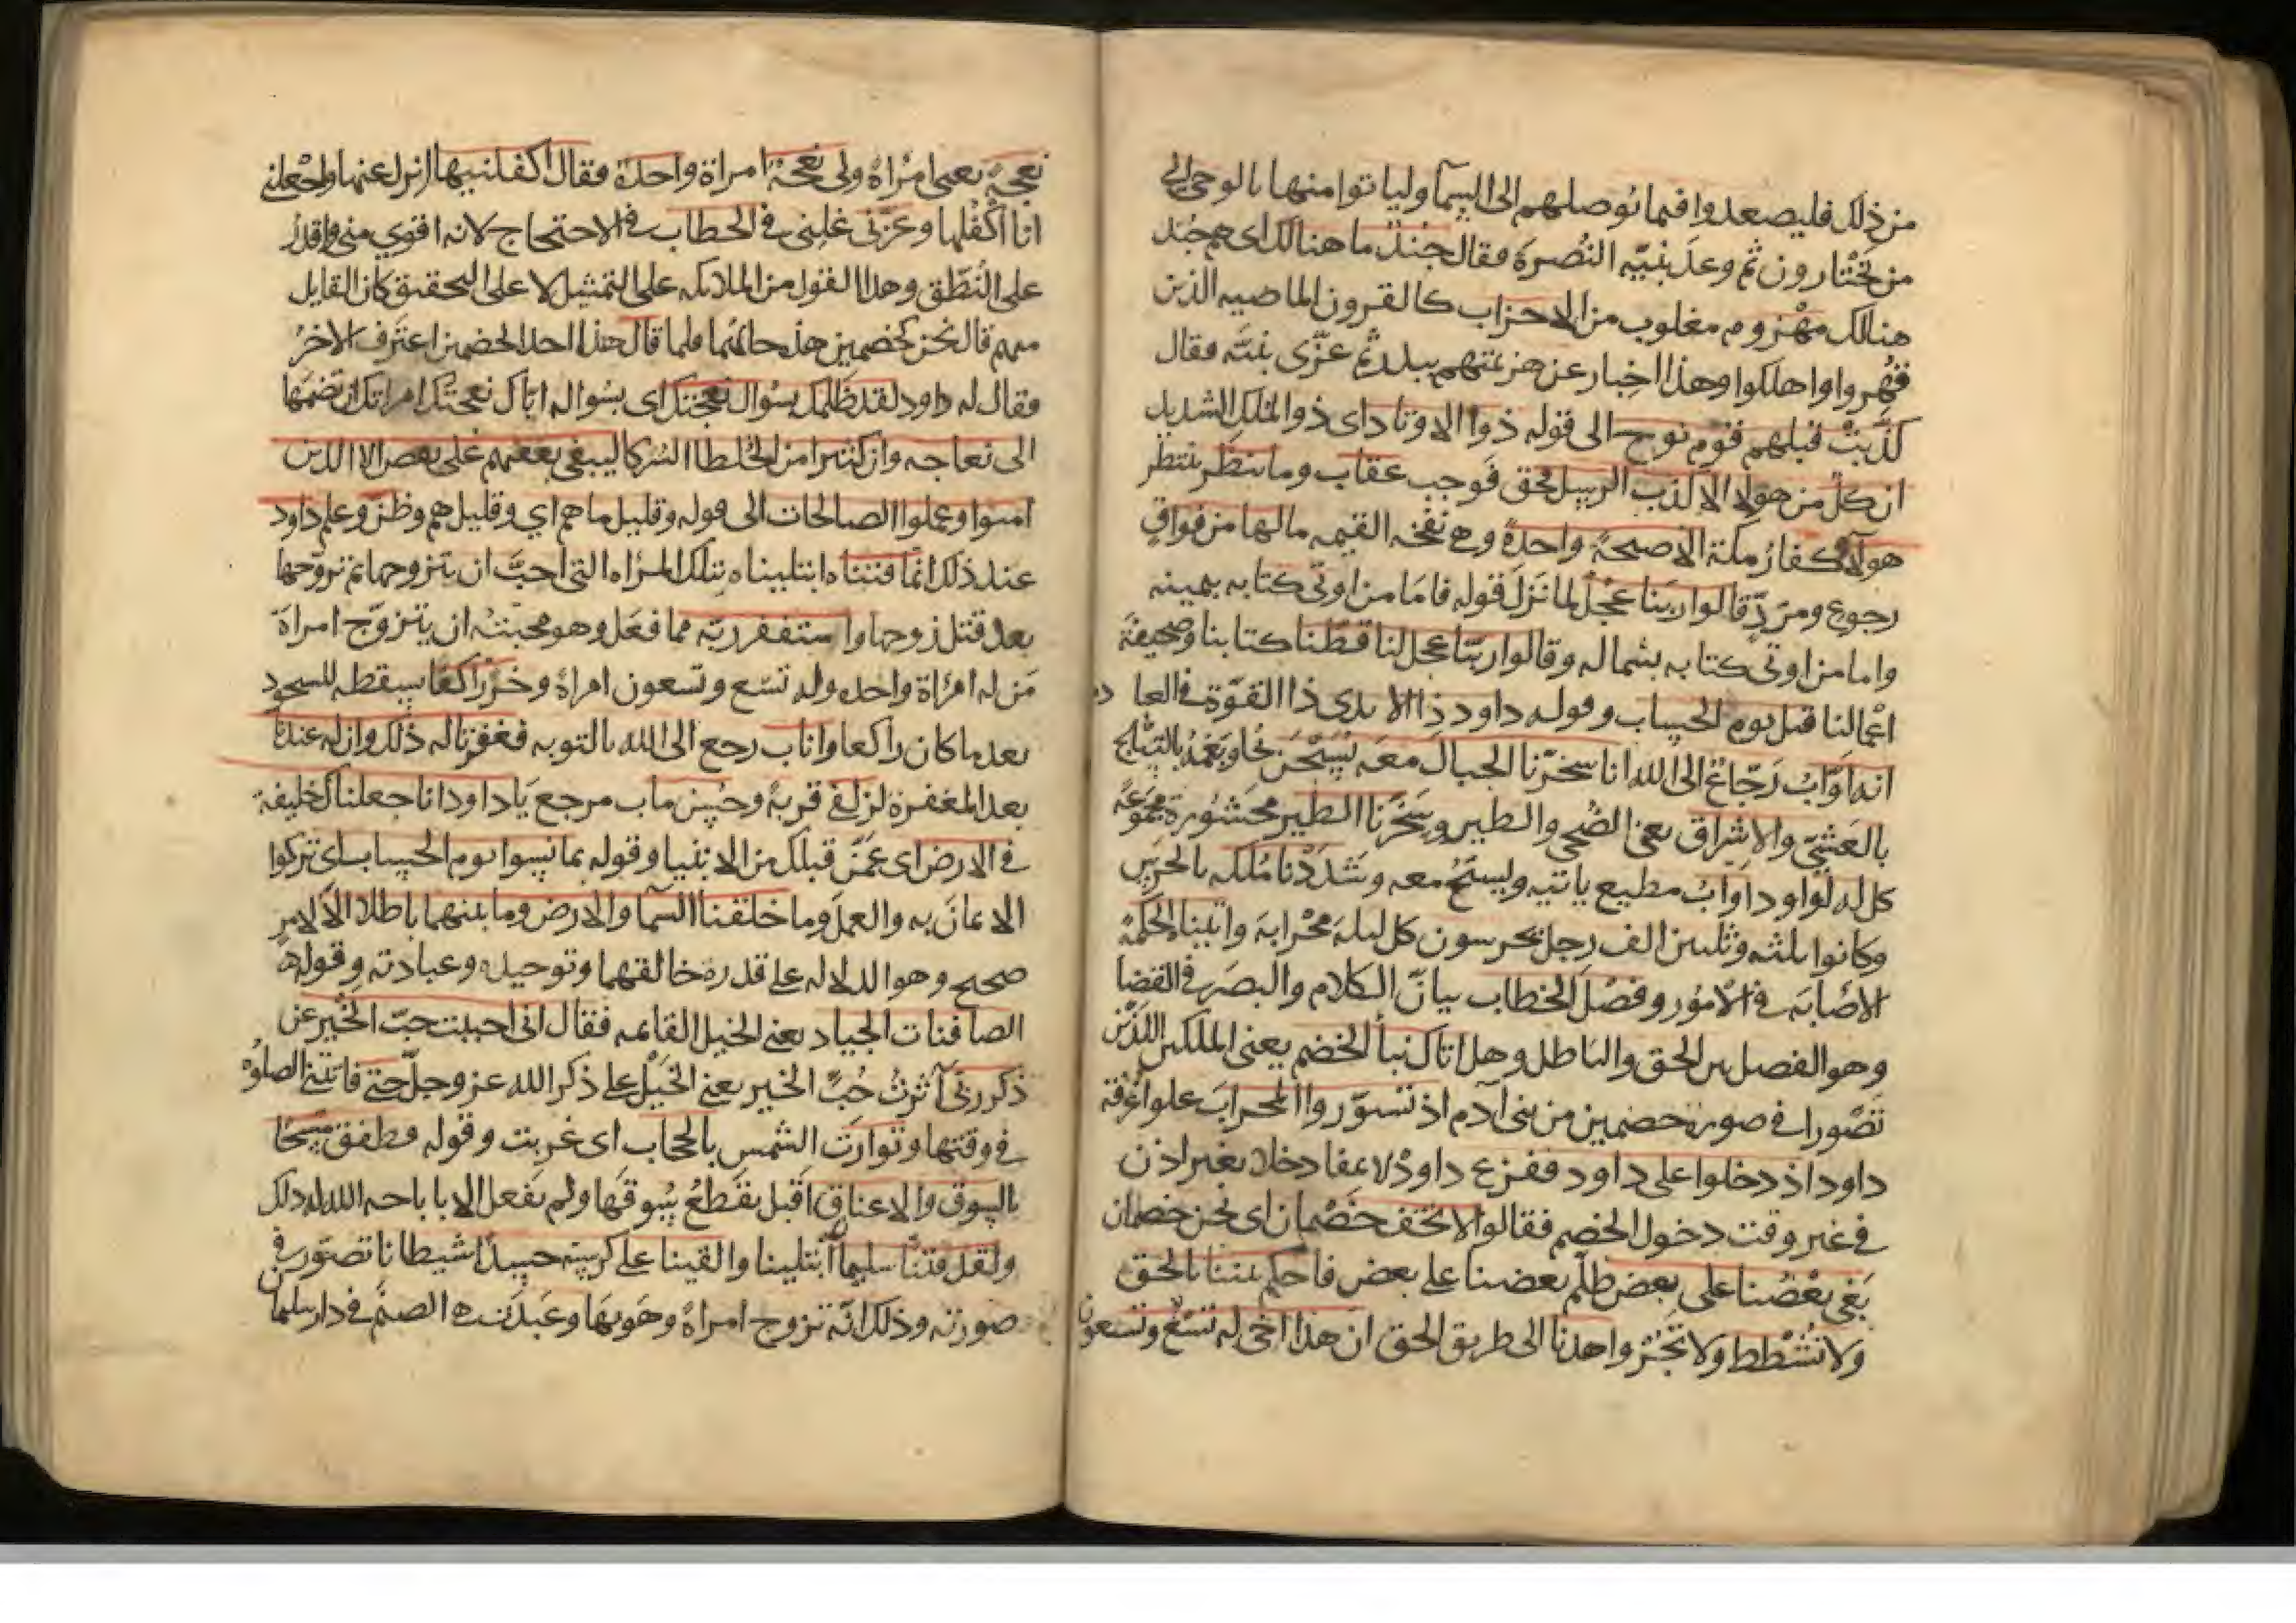 من ذلك فليصعدوا فيما يُوصلهم الى السمآ وليا توا منها بالوحى الى
من يَخْتارون ثم وعدَ نبيّه النُصرة فقال جندٌ ما هنالك اى هم جُند
هنالك مهْزوم مغلوب من الاحزاب كالقرون الماضيه الذين
قُهِروا واهلكوا وهذا اخبار عن هزيمتهم ببدر ثم عزّى نبيّه فقال
كذّبتْ قبلهم قوم نوح الى قوله ذوا الاوتاد اى ذوا الملك الشديد
ان كلٌّ من هولاِ الا كذب الرسل فحق فوجب عقاب وما ينظر ينتظر
هولآء كفارُ مكة الا صيحةً واحدةً وهى نفخة القيمه مالها من فواقٍ
رجوع ومردٍّ قالوا ربنا عجّل لما نَزلَ قوله فامَا من اوتى كتابه بيمينه
واما من اوتى كتابه بشماله وقالوا ربّنا عجل لنا قطّنا كتابنا وصحيفةَ
اعْمالنا قبل يوم الحساب وقوله داود ذا الايدى ذا القوّة فى العبادة
انه اوّابٌ رَجّاعٌ الى الله انا سخرّنا الجبال معَه يُسَبّحن يُجاوبنهُ بالتسبيح
بالعَشيّ والاشراق يعنى الضُحى والطير وسخّرنا الطير محشُورة مجموعَةً
كل له لداود اوّابٌ مطيع ياتيه ويسبّحُ معه وشَدَدْنا مُلكه بالحرَس
وكانوا ثلثه وثلثين الف رجل يحرسون كل ليلة مِحْرابهَ واتيناه الحكمةَ
الاصَابة فى الامُور وفصْل الخطاب بيانَ الكلام والبصَر فى القضا
وهو الفصل بين الحق والباطل وهل اتاك نبأُ الخصْم يعنى الملكين اللذَيْن
تصّورا فى صورة خصمين من بنى آدم اذ تسوّروا المحرابَ علوا غرْفة
داود اذ دخلوا على داود ففزع داودُ لانهما دخلا بغير اذن
فى غير وقت دخول الخصم فقالوا لا تخف خصْمان اى نحن خصمان
بَغى بعْضُنا على بعض ظلم بعضنا على بعض فاحكم بيننا بالحق
ولا تُشْطط ولا تَجُرْ واهدنا الى طريق الحق ان هذا اخى له تسْعٌ وتسعون
نعجةً يعنى امْراةً ولى نعجة امراة واحدة فقال اكفلنيها انزل عنها واجْعلنى
انا اكْفُلها وعَزّنى غلبنى فى الخطاب فى الاحتجاج لانه اقوي منى واقدَرُ
على النُطْق وهذا القول من الملائكه على التمثيل لا على التحقيق كان القايل
منهم قال نحن كخصمين هذه حالهُما فلما قال هذا احد الخصمين اعترف الاخرُ
فقال له داود لقد ظلمك بسُوال نعجتك اى بسُواله اياك نعجتَك امراتك ان تضمّها
الى نعاجه وان كثيرا من الخلطا الشركا ليبغى بعضهم على بعض الا الذين
امنوا وعملوا الصالحات الى قوله وقليل ما هم اي وقليل هم وظنّ وعلم داود
عند ذلك انمّا فتنّاه ابتليناه بتلك المراه التى احبَّ ان يتزوجها ثم تزوّجها
بعد قتل زوجها واستغفر ربّه مما فعَل وهو محبّتهُ ان يتزوّج امراةَ
مَن له امرُاة واحده وله تسْع وتسعون امراةً وخَرّ راكعًا سقط للسجود
بعد ما كان راكعا واناب رجع الى الله بالتوبه فغفرنا له ذلك وان له عندنا
بعد المغفرة لزلفى قربةً وحُسْن ماب مرجع يَا داود انا جعلناك خليفةً
فى الارض اى عمّن قبلك من الانبيا وقوله بما نسوا يوم الحساب اى تركوا
الايمانَ به والعمل وما خلقنا السمآ والارض وما بينهما باطلاً الا لامرٍ
صحيح وهو الدلاله على قدرة خالقهما وتوحيده وعبادته وقوله
الصافنات الجياد يعنى الخيل القائمه فقال انى احببت حبّ الخَيْر عن
ذكر ربّى آثرتُ حُبَّ الخير يعنى الخَيْل على ذكر الله عز وجلّ حتى فاتتنى الصلوة
فى وقتها وتوارَت الشمس بالحجاب اى غربت وقوله وطفق مَسْحًا
بالسوق والاعناق اقبل يقَطعُ سُوقَها ولم يَفعل الا باباحه الله له ذلك
ولقد فتنّا سليمان ابْتلينا والقينا على كرسيّه جسدًا شيطانا تصوّر فى
صورته وذلك انّه تزوج امراةً وهَويَها وعَبدَت هى الصنَم فى دار سليمان